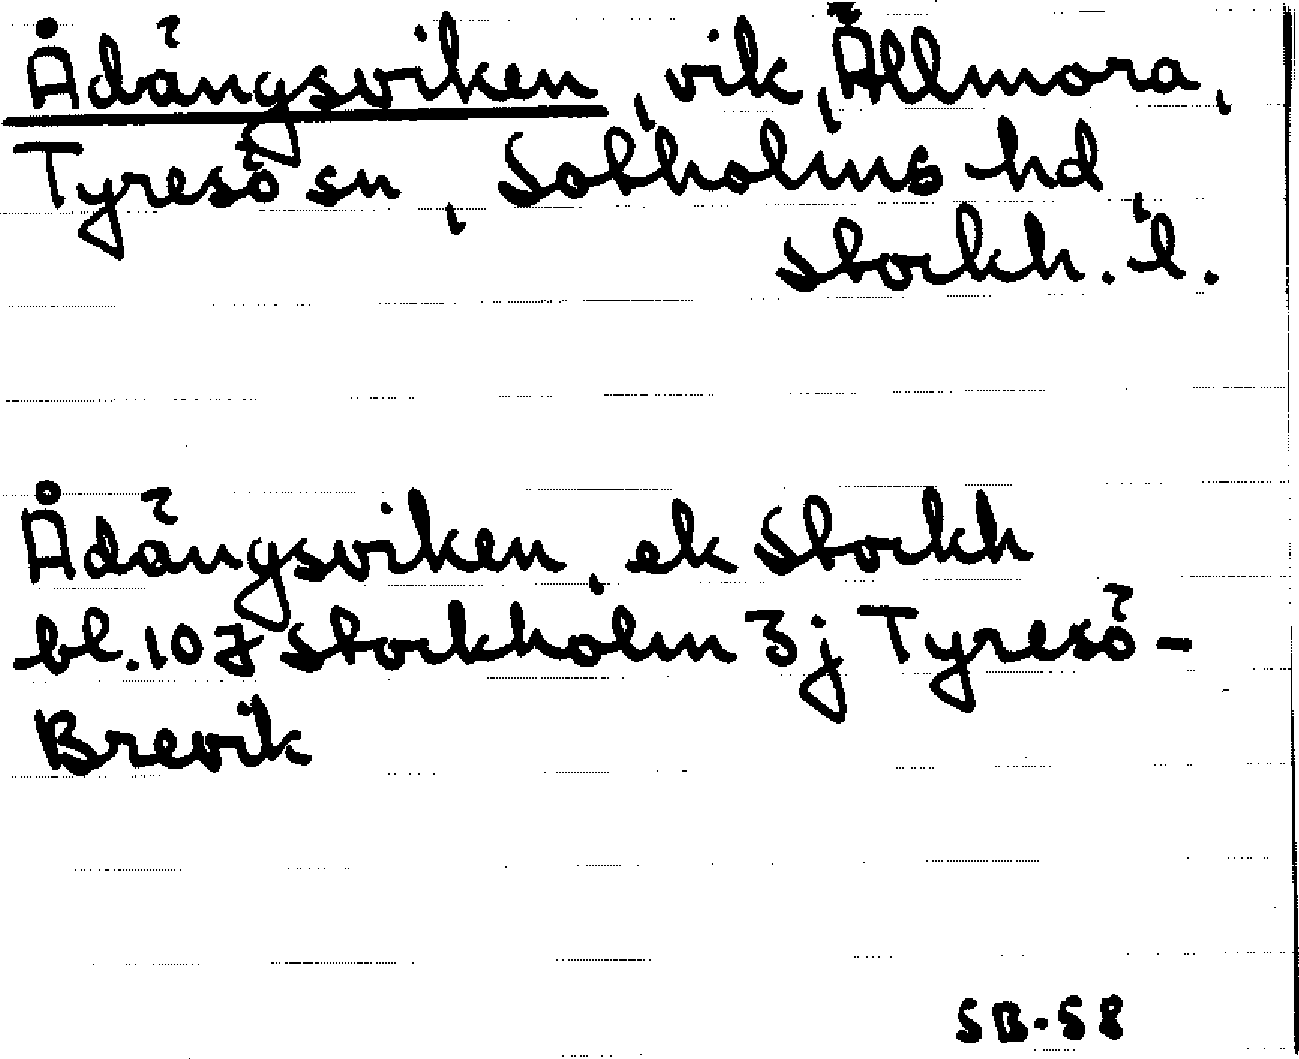 Ådängsviken, vik, Ällmora,
Tyresö sn, Sotholms hd,
Stockh. l.
Ådängsviken, ek Stockh
bl. 107 Stockholm 3j Tyresö-
Brevik
SB-58